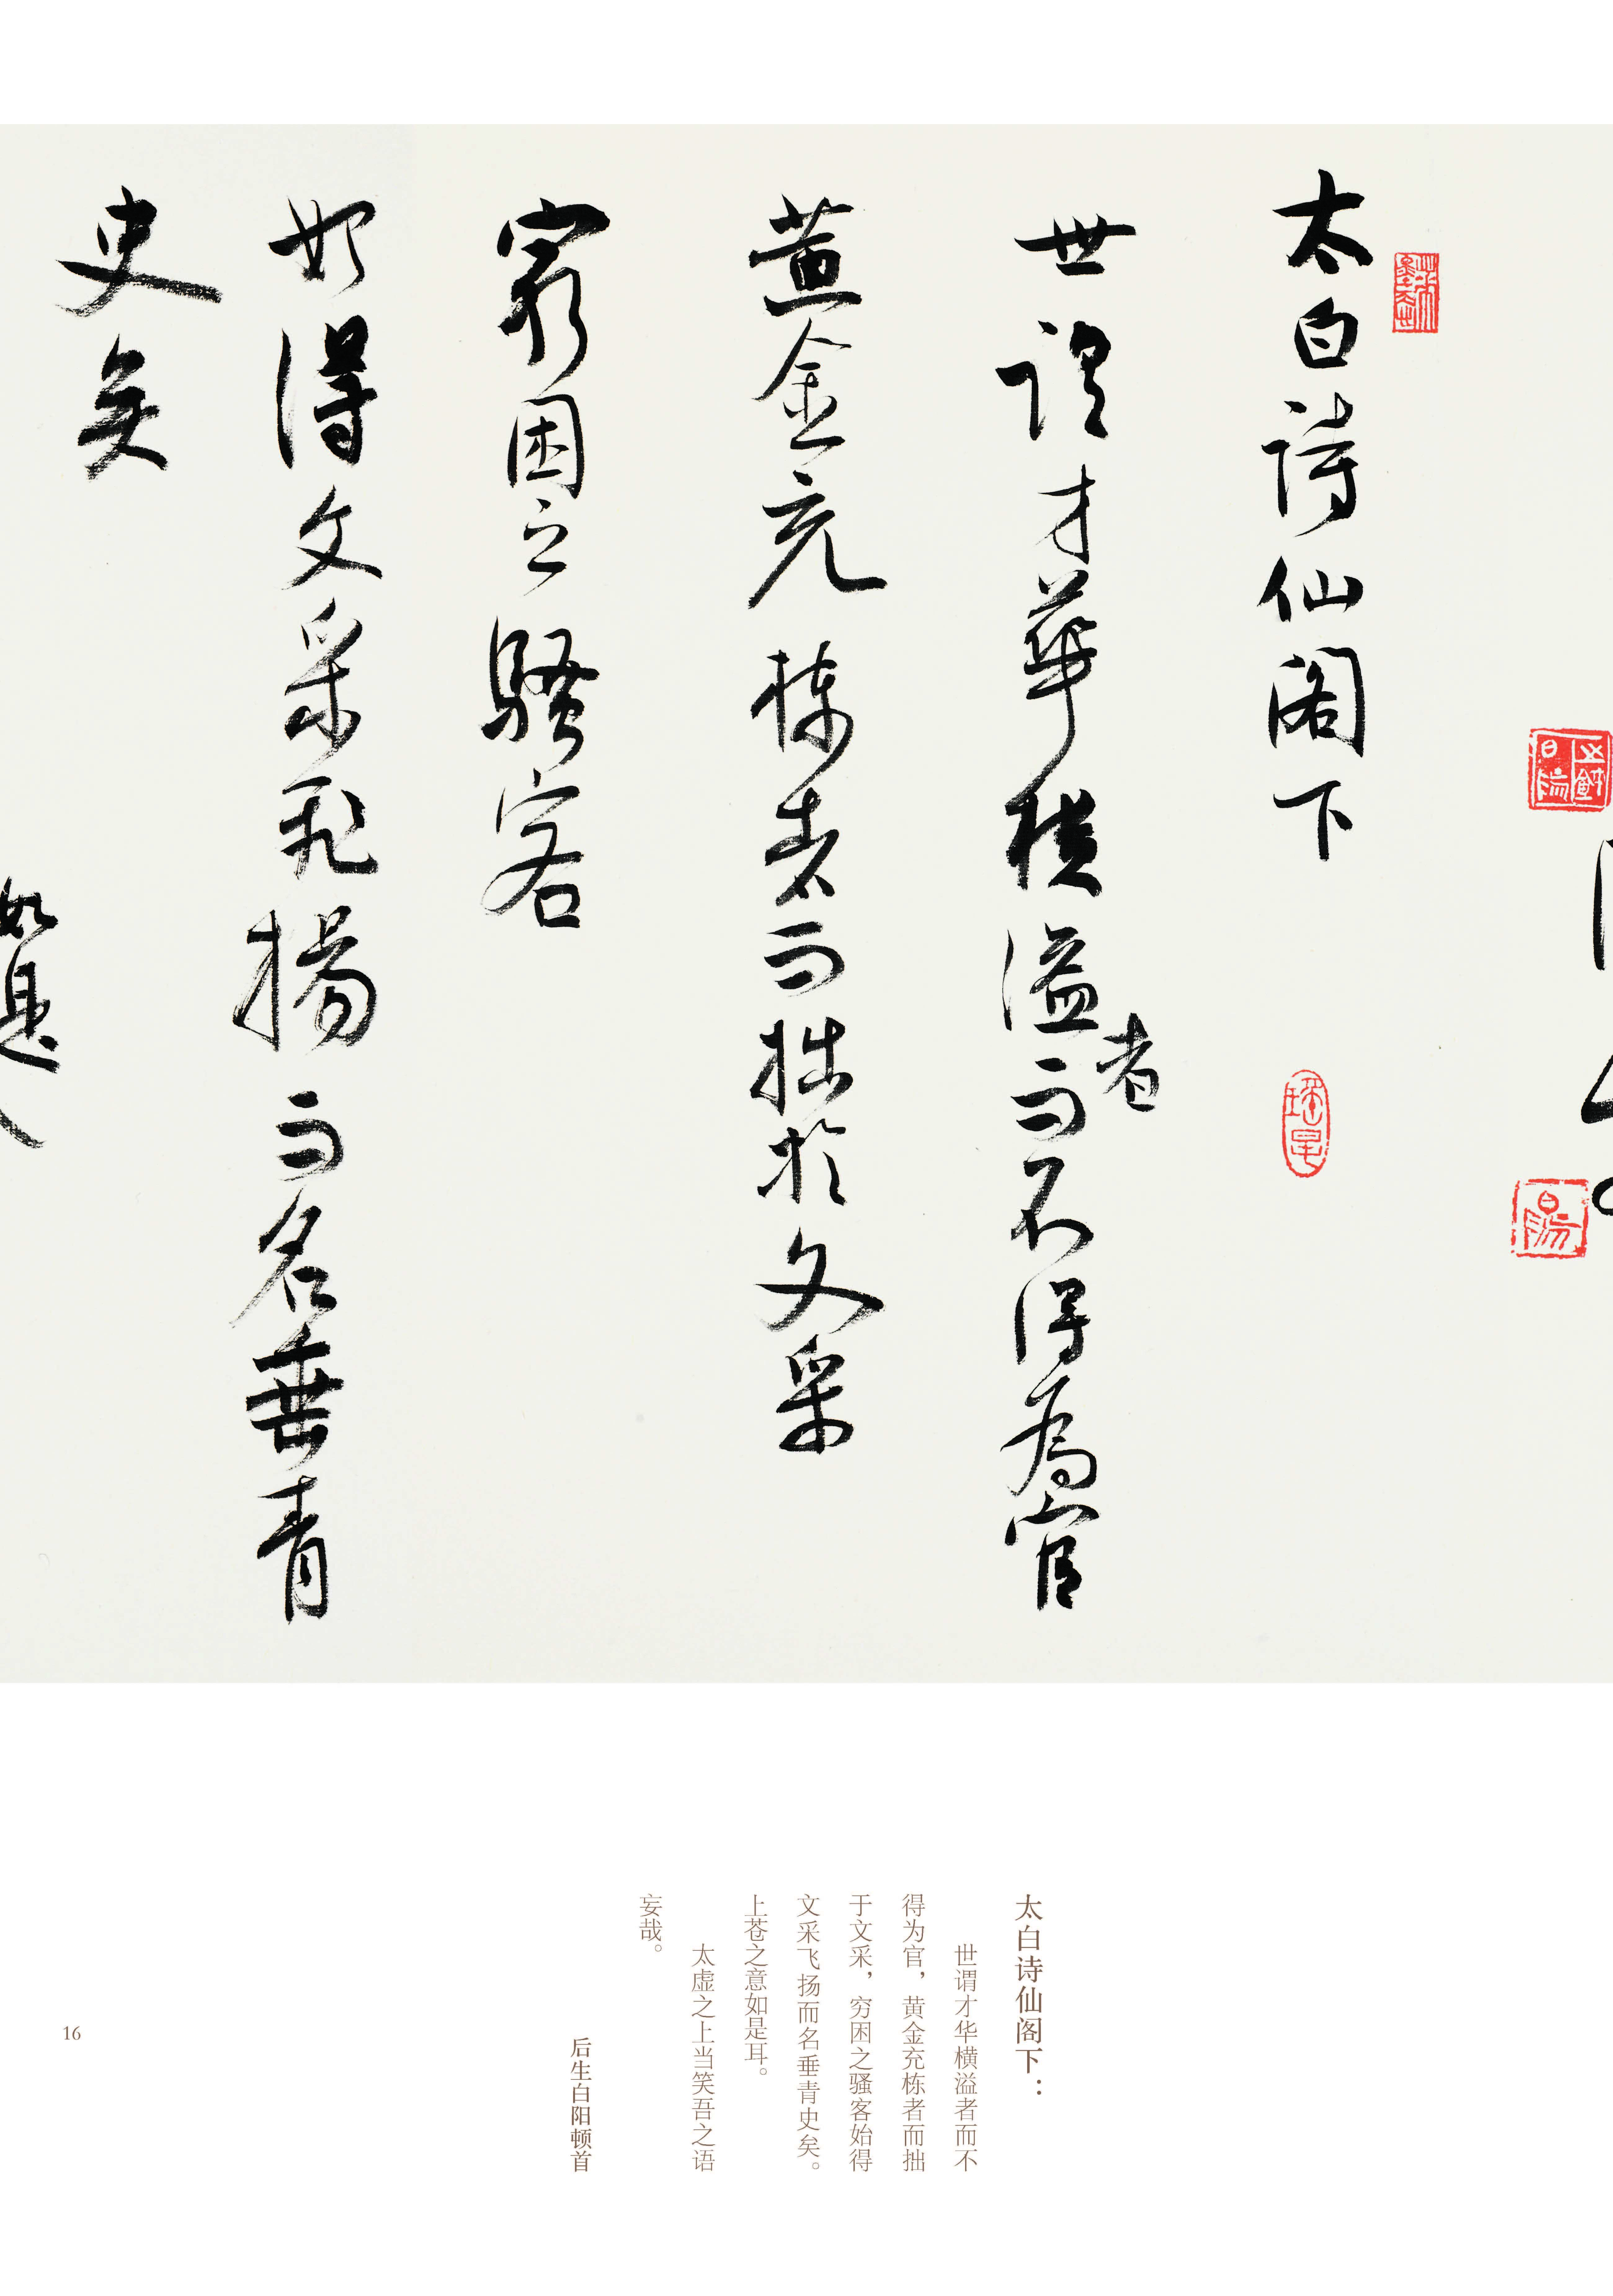 太白詩仙阁下
世謂才華横溢者而不得為官
黄金充棟者而拙於文采
窮困之騷客
始得文采飛揚而名垂青
史矣
如是
太白诗仙阁下：
世谓才华横溢者而不
得为官，黄金充栋者而拙
于文采，穷困之骚客始得
文采飞扬而名垂青史矣。
上苍之意如是耳。
太虚之上当笑吾之语
妄哉。
后生白阳顿首
16